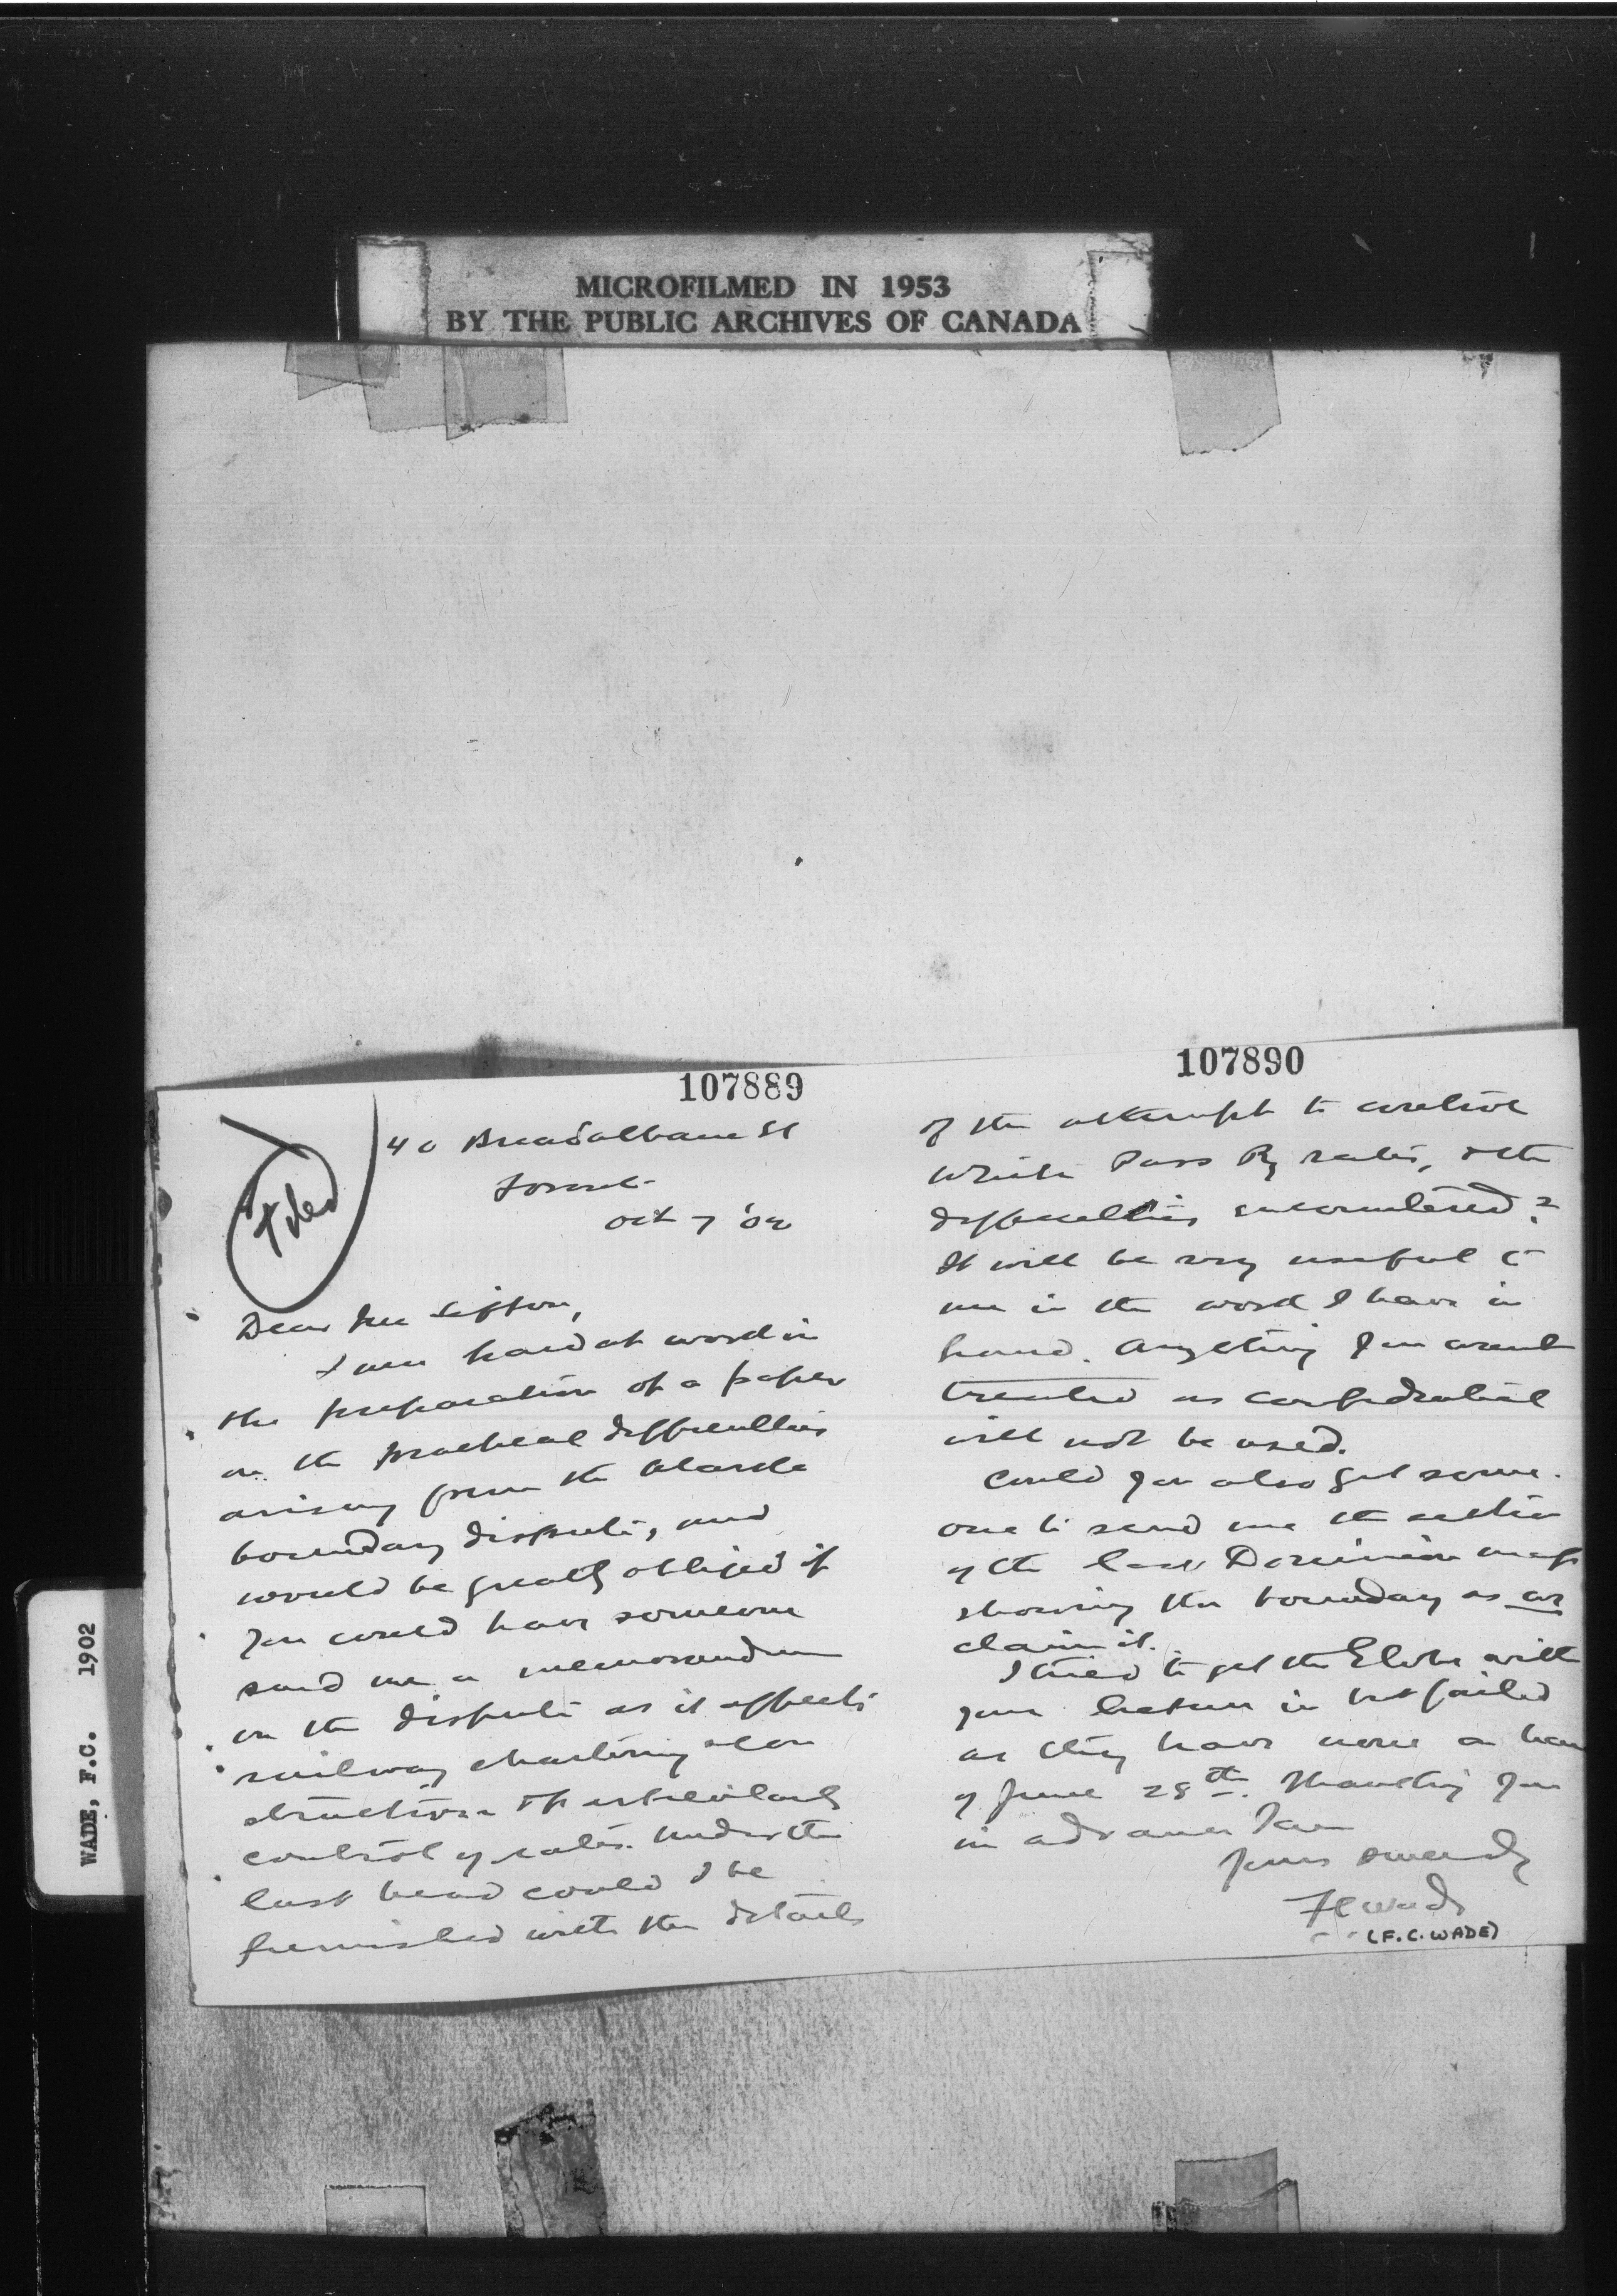 MICROFILMED IN 1953
BY THE PUBLIC ARCHIVES OF CANADA
WADE, F.C. 1902
107889
Filed
40 Breadalbane St
Toronto
Oct 7 '02
Dear Mr Sifton,
I am hard at work in
the preparation of a paper
on the practical difficulties
arising from the Alaska
boundary dispute, and
would be greatly obliged if
you could have someone
send me a memorandum
on the dispute as it affects
railway chartering & con
struction & particularly
control of rates. Under the
last head could I be
furnished with the details
107890
of the attempt to control
White Pass Ry rates, & the
difficulties encountered?
It will be very useful to
me in the work I have in
hand. Anything you want
treated as confidential
will not be used.
Could you also get some
one to send me the section
of the last Dominion map
showing the boundary as we
claim it.
I tried to get the Globe with
your lecture in but failed
as they have none on hand
of June 28th. Thanking you
in advance I am
Yours sincerely
F C Wade
(F.C. WADE)